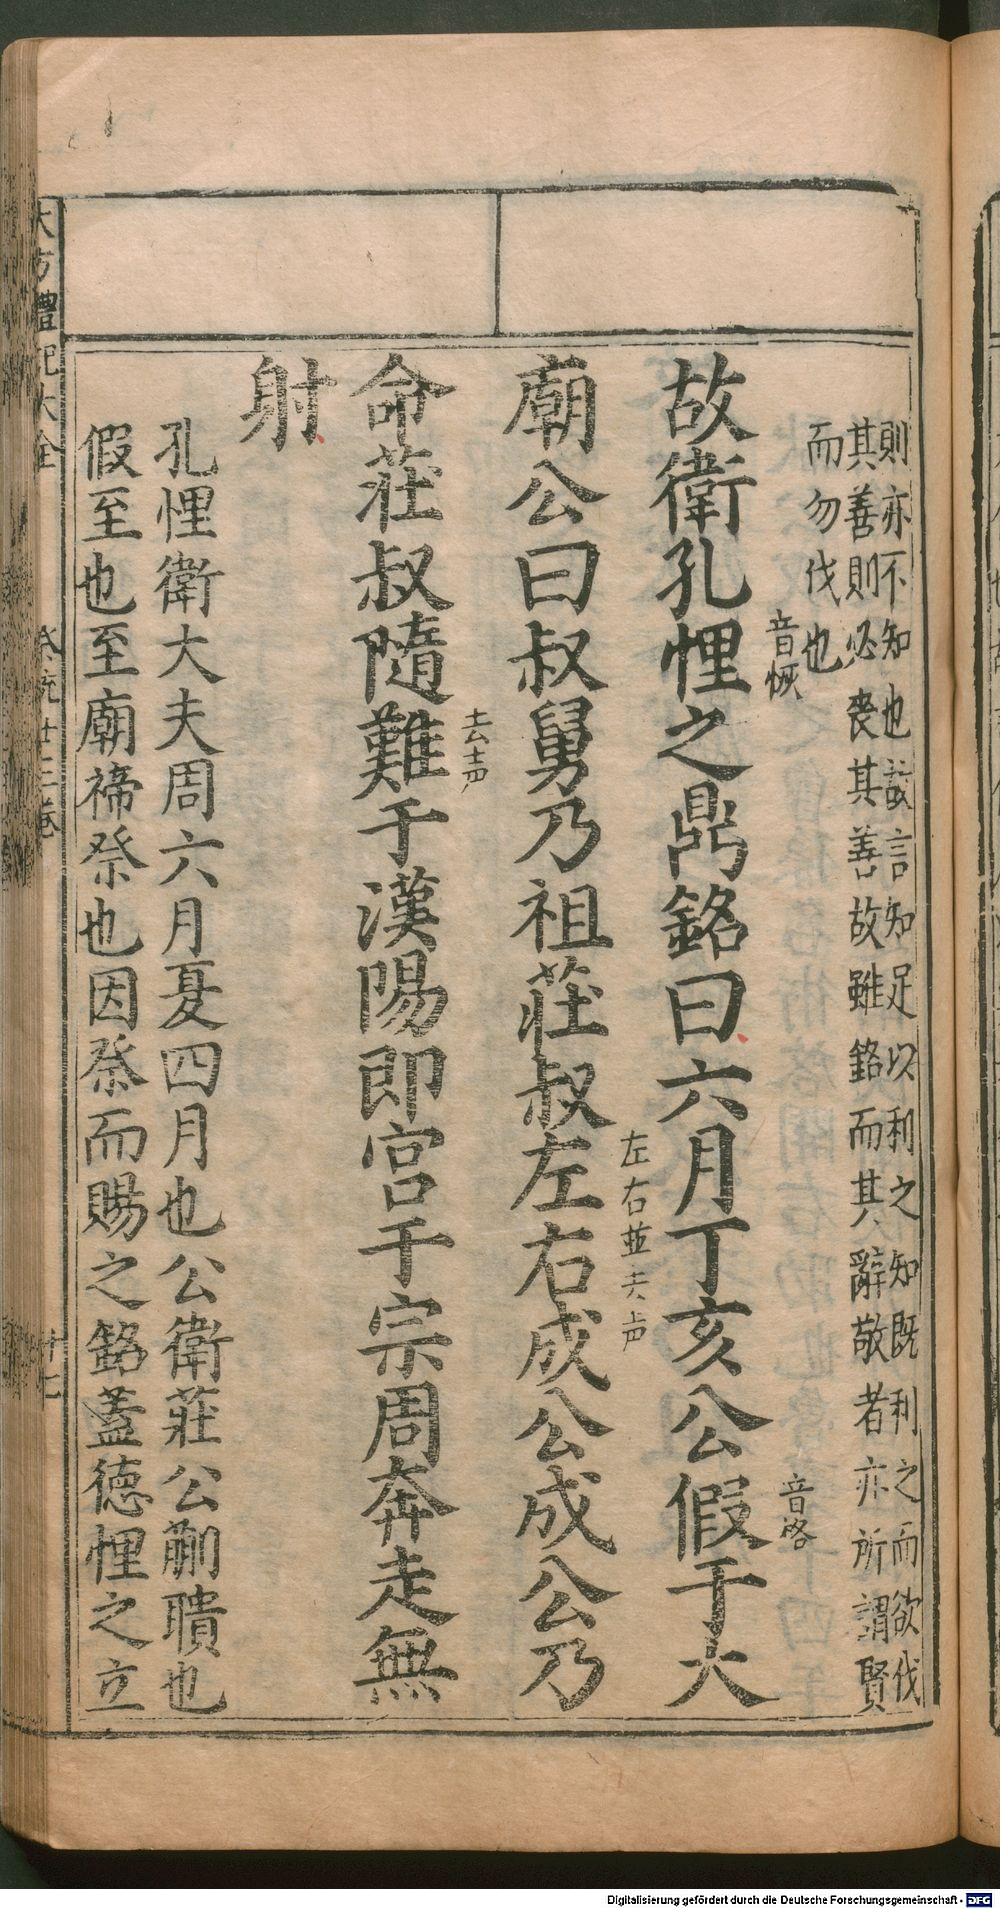 則亦不知也哉言知足以利之知既利之而欲伐
其善則必喪其善故雖銘而其辭敬者亦所謂賢
而勿伐也
故衛孔悝音恢之鼎銘曰六月丁亥公假音格于大
廟公曰叔舅乃祖莊叔左右左右並去声成公成公乃
命莊叔隨難去声于漢陽即宮于宗周奔走無
射
孔悝衛大夫周六月夏四月也公衛莊公蒯聵也
假至也至廟禘祭也因祭而賜之銘蓋德悝之立
大方禮記大全
祭統廿三卷
十二
Digitalisierung gefördert durch die Deutsche Forschungsgemeinschaft - DFG